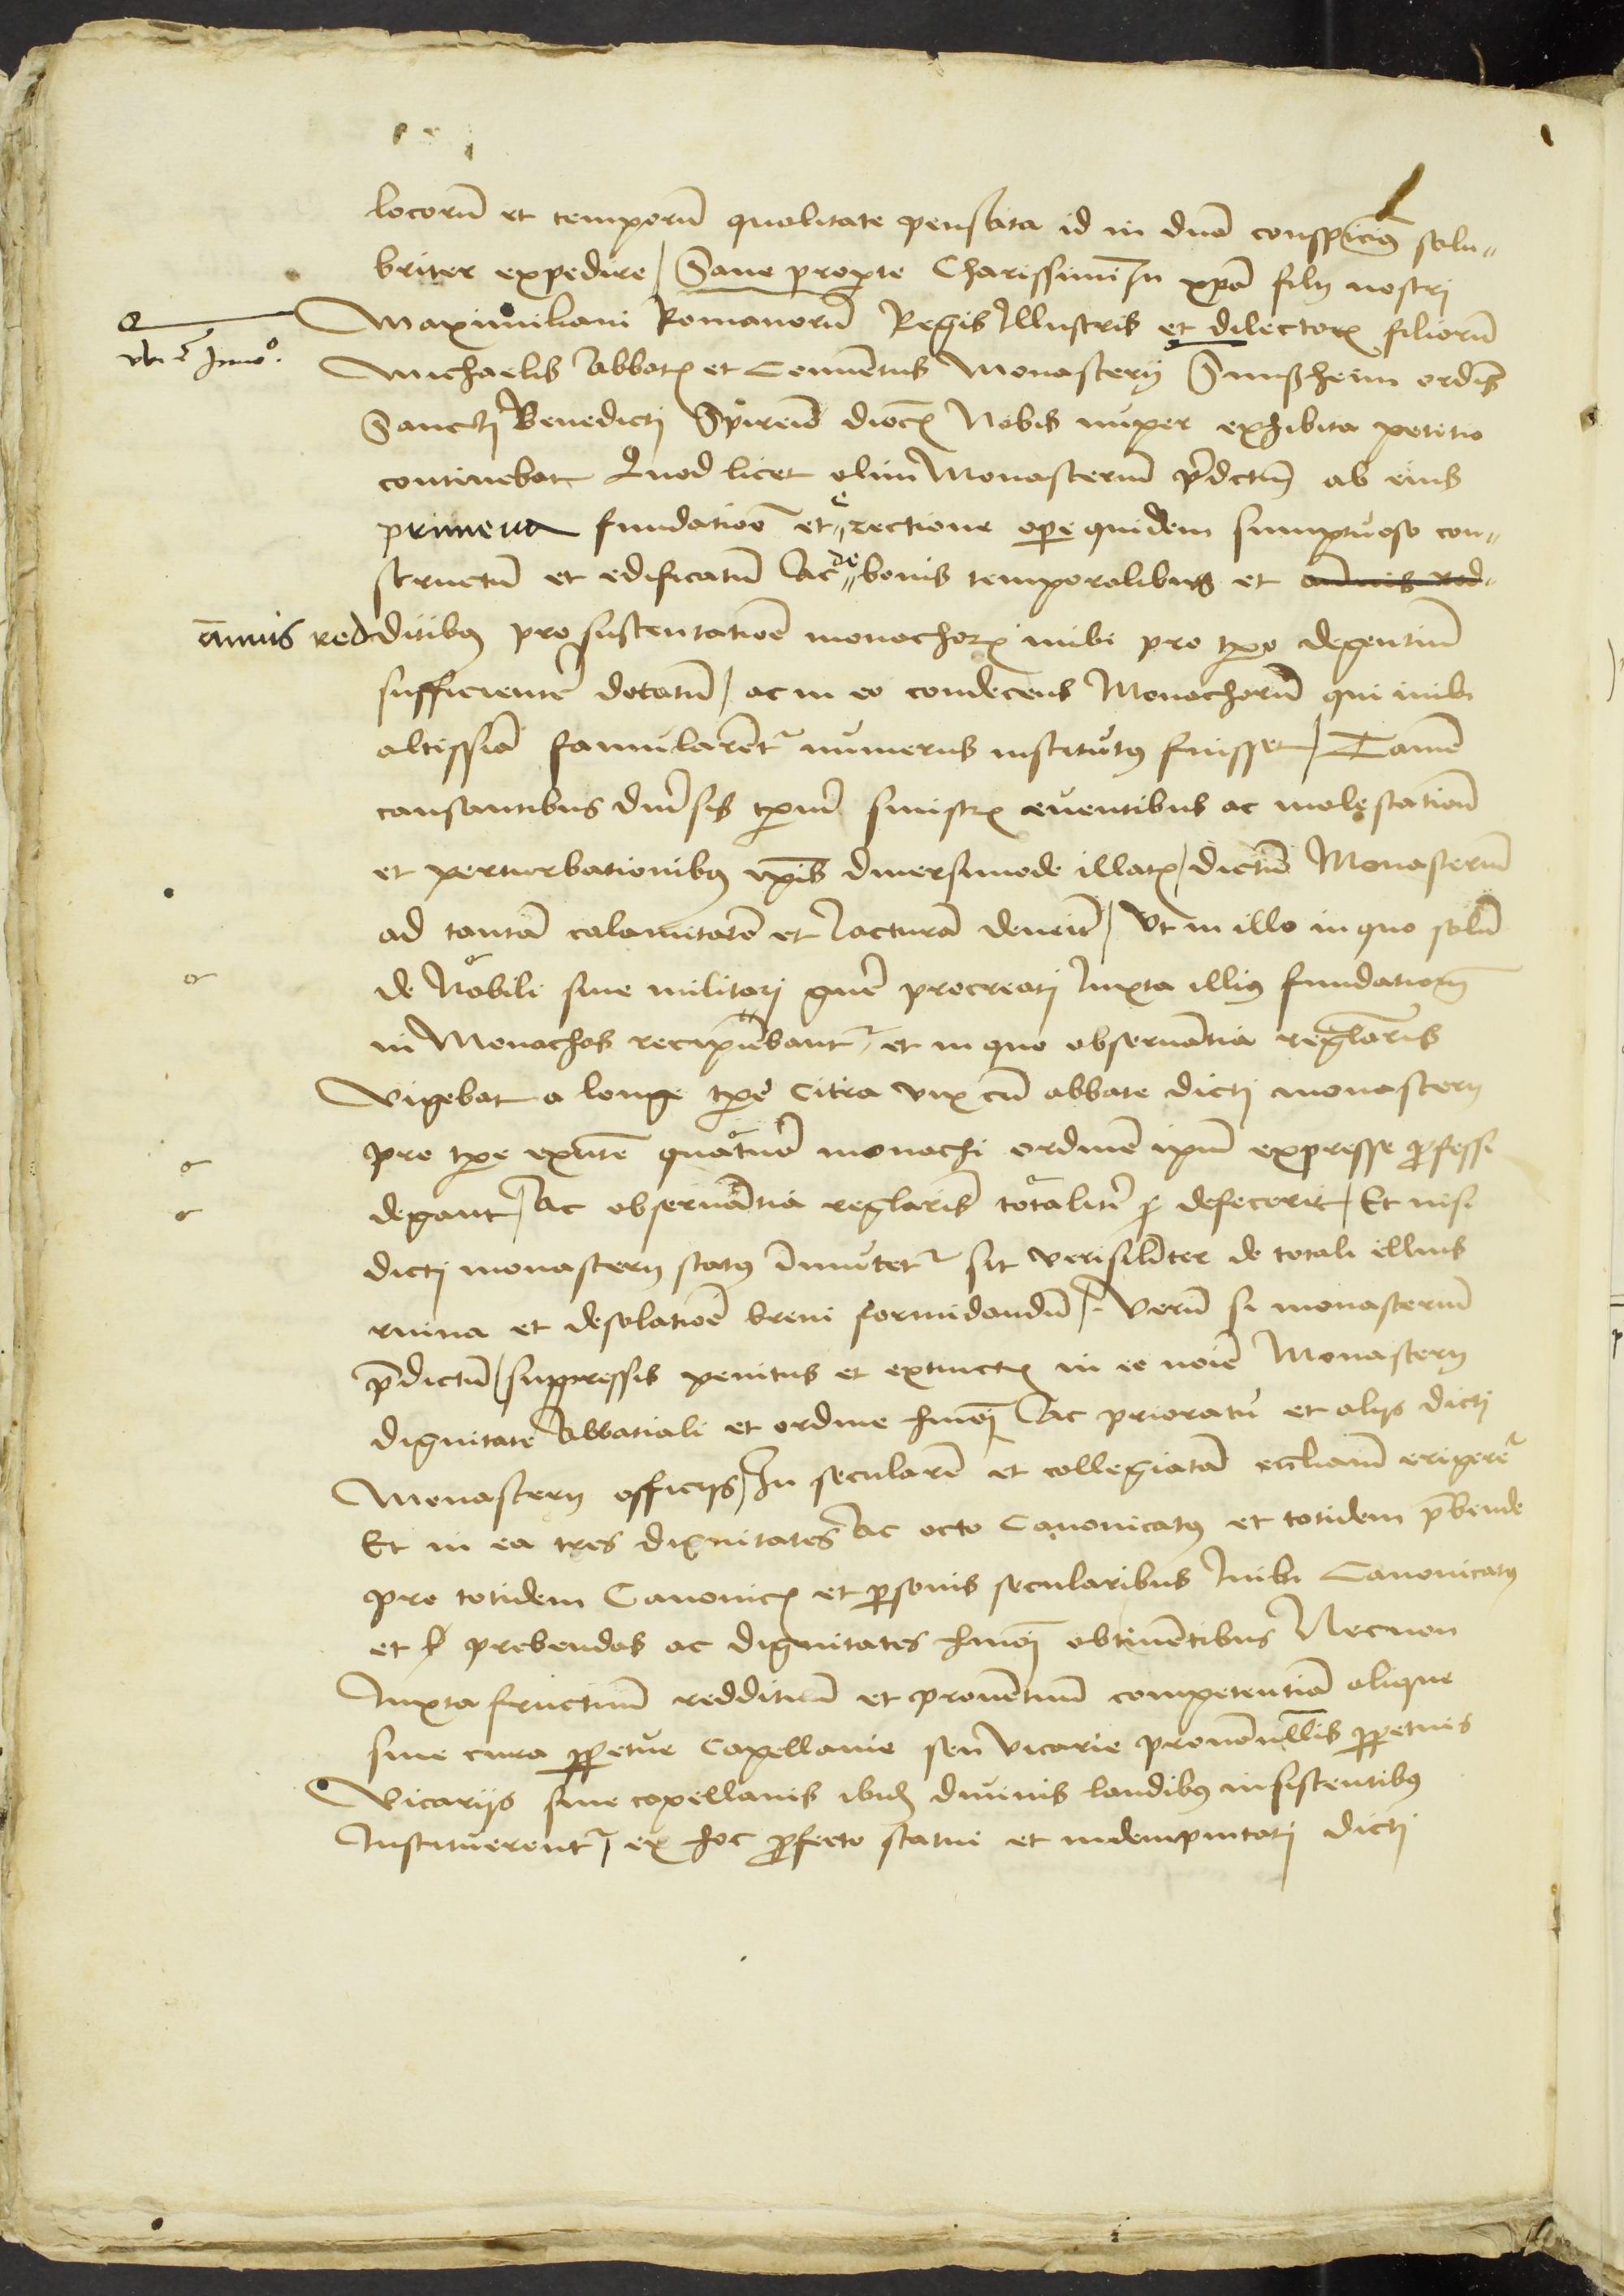 locorū et temporū qualitate pensata id in dnō conspiciꝰ salu„
briter expedire / Sane pro parte Charissimi In xpō filij nostri
Maximiliani Romanorū Regis Illustris et dilectorꝝ filiorū
Michaelis Abbatꝭ et Conuētus Monasterij Sunßheim ordīs
Sancti Benedicti Spireñ diocꝭ Nobis nuper exhibita petitio
continebat Quod licet olim Monasteriū p̄dctū ab eius
primeua fundatioē et „erectione ope quidem sumptuoso con„
structū et edificatū ac „de bonis temporalibus et annuis red„
ān̄uis redditibꝰ pro sustentatioē monachorꝝ inibi pro tpe degentiū
sufficientē dotatū / ac in eo condecens Monachorū qui inibi
altissimō famularentᷣ numerus institutꝰ fuisset / Tamē
causantibus diuˀsis tpm̄ sinistrꝭ euentibus ac molestationū
et perturbationibꝰ ipīs diuersimode illatꝭ / dictū Monasteriū
ad tantā calamitatē et Iacturā deuenit / Vt in illo in quo solū
de Nobili siue militari gnē procreati Iuxta illiꝰ fundationē
in Monachos recipiebantᷣ et in quo obseruātia reglaris
Vigebat a longe tpe citra vix cū abbate dicti monasterij
pro tpe exn̄te quatuor monachi ordinē ipm̄ expresse ꝓfessi
degant / Ac obseruātia reglaris totalitˀ defecerit / Et nisi
dicti monasterij statꝰ īmutetᷣ sit verisilīter de totali illius
ruina et desolatioē breui formidandū / Verū si monasteriū
p̄dictū / suppressis penitus et extinctꝭ in eo noīe Monasterij
dignitate Abbatiali et ordine hmōi Ac prioratu et alijs dicti
Monasterij officijs / In secularē et collegiatā ecc̄liam erigeretᷣ
Et in ea tres dignitates Ac octo Canonicatꝰ et totidem p̄bende
pro totidem Canonicꝭ et ꝑsonis secularibus Inibi Canonicatꝰ
et prebendas ac dignitates hmōi obtinētibus Necnon
Iuxta fructuū reddituū et prouentuū competentiā alique
sine cura ꝑpetue Capellanie seu vicarie pro nōnullis ꝑpetuis
Vicarijs siue capellanis ibidꝭ diuinis laudibꝰ insistentibꝰ
Instituerentᷣ / ex hoc ꝓfecto statui et indempnitati dicti